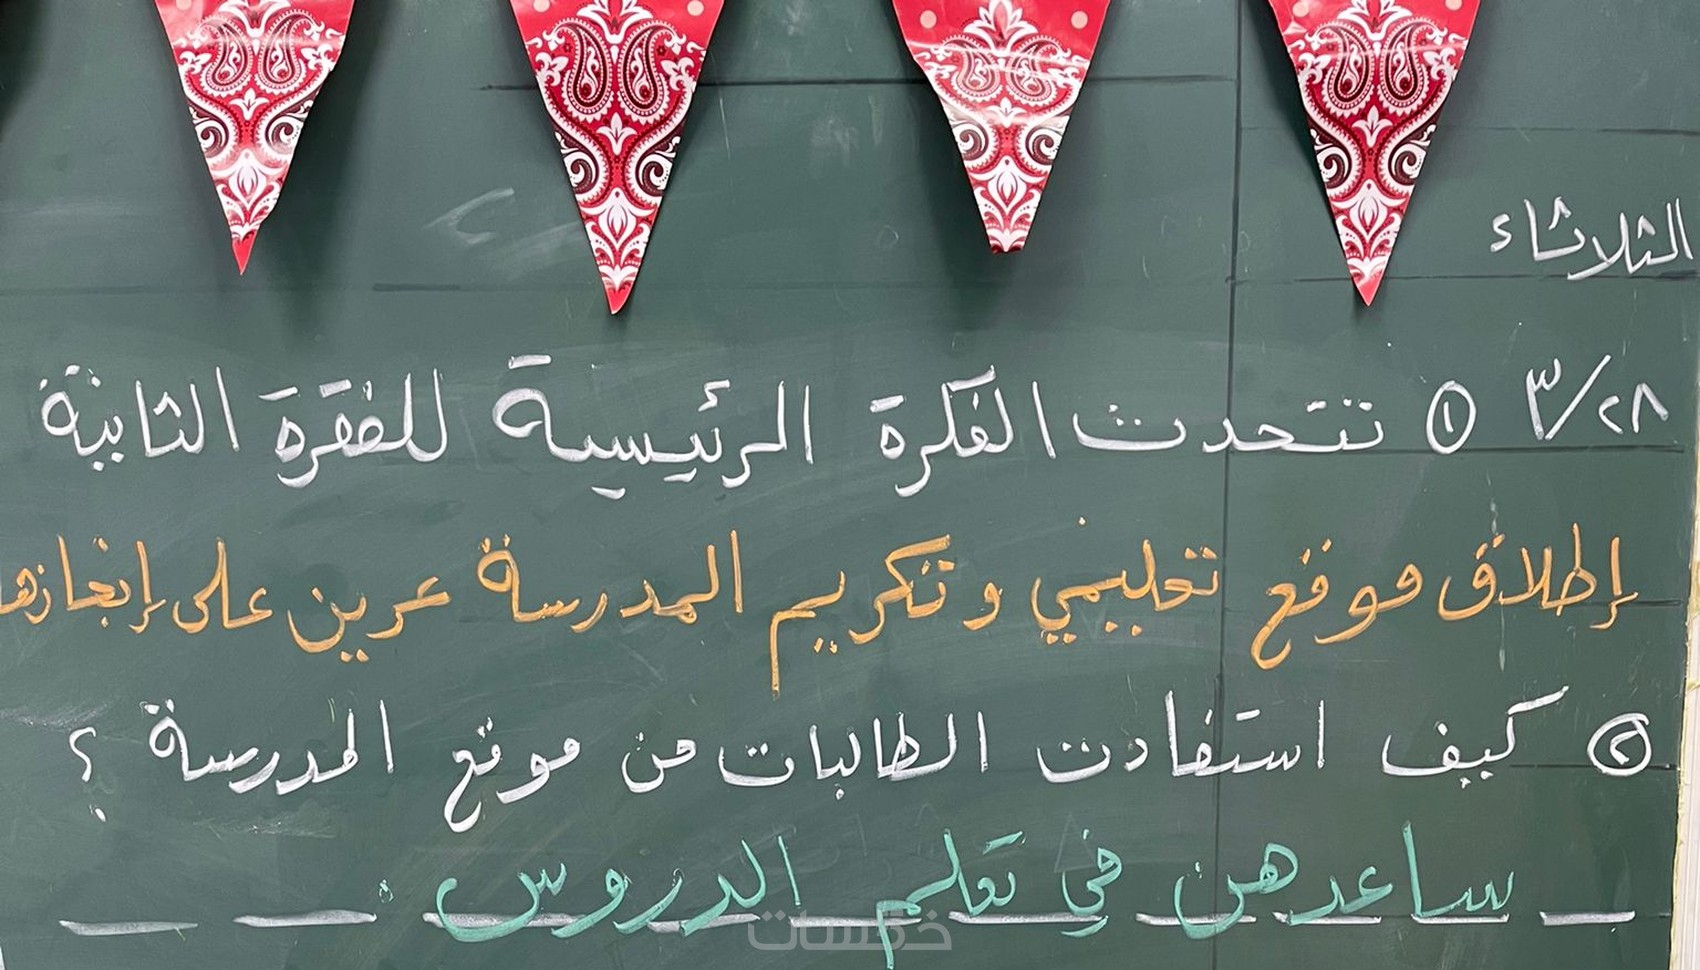 الثلاثاء
٣/٢٨ ① تتحدث الفكرة الرئيسية للفقرة الثانية
إطلاق موقع تعليمي وتكريم المدرسة عرين على إنجازها
② كيف استفادت الطالبات من موقع المدرسة ؟
ساعدهن في تعلم الدروس .
خمسات